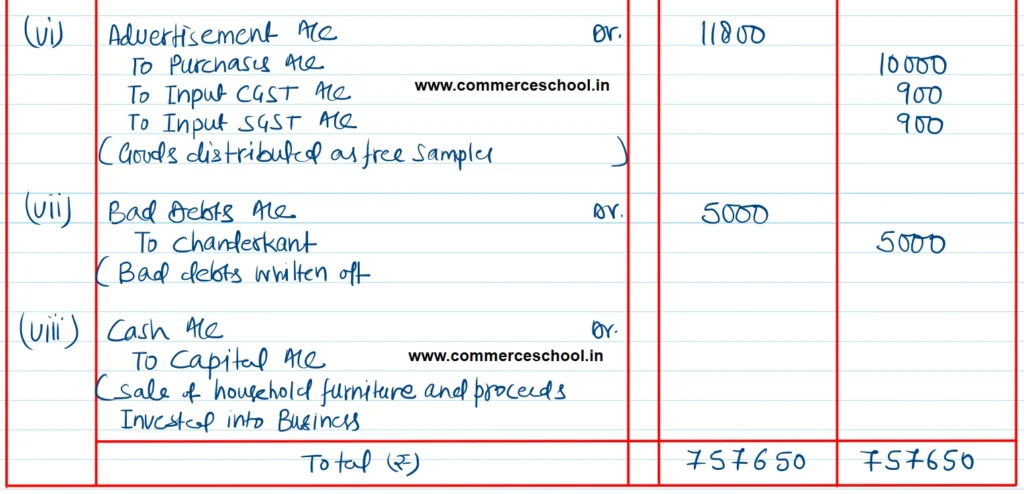 (vi) Advertisement A/c Dr. 11800
To Purchases A/c 10000
www.commerceschool.in
To Input CGST A/c 900
To Input SGST A/c 900
(Goods distributed as free samples )
(vii) Bad Debts A/c Dr. 5000
To Chanderkant 5000
(Bad debts written off
(viii) Cash A/c Dr.
To Capital A/c www.commerceschool.in
(Sale of household furniture and proceeds
Invested into Business
Total (₹) 757650 757650